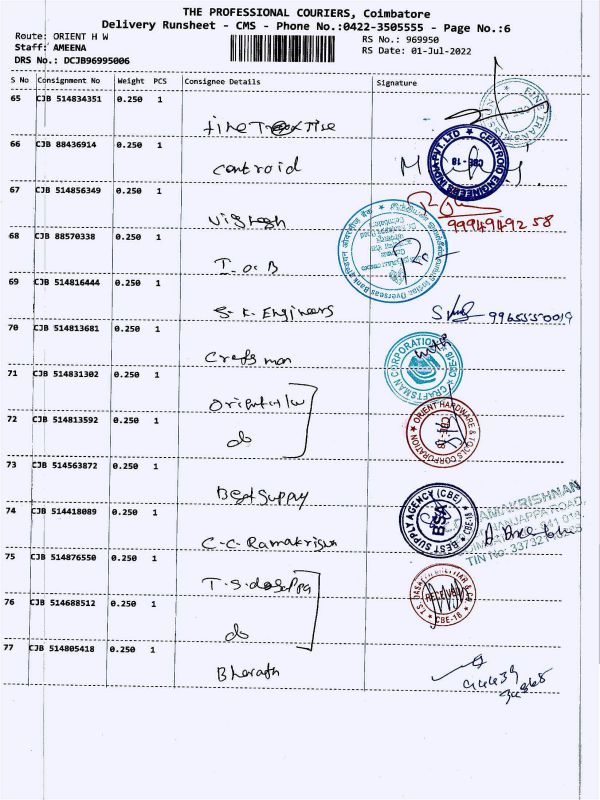 THE PROFESSIONAL COURIERS, Coimbatore
Delivery Runsheet - CMS - Phone No.:0422-3505555 - Page No.:6
Route: ORIENT H W
RS No.: 969950
Staff: AMEENA
RS Date: 01-Jul-2022
DRS No.: DCJB96995006
S No Consignment No Weight PCS Consignee Details Signature
65 CJB 514834351 0.250 1
66 CJB 88436914 0.250 1 centroid
CENTROID ENGINEERS INDIA PVT. LTD CBE - 18
67 CJB 514856349 0.250 1 Vignesh
9994949258
68 CJB 88570338 0.250 1 I.O.B
Indian Overseas Bank
69 CJB 514816444 0.250 1 S.K. Engineers
9965550019
70 CJB 514813681 0.250 1 Crafsman
CRAFTSMAN CORPORATION
71 CJB 514831302 0.250 1 Orient H/w
72 CJB 514813592 0.250 1 do
ORIENT HARDWARE & TOOLS CORPORATION CBE-18
73 CJB 514563872 0.250 1 Best Supply
BEST SUPPLY AGENCY (CBE) BSA CBE-18
74 CJB 514418089 0.250 1 C.C. Ramakrisun
RAMAKRISHNAN
75 CJB 514876550 0.250 1 T.S.dasappa
76 CJB 514688512 0.250 1 do
RECEIVED CBE-18
77 CJB 514805418 0.250 1 Bharath